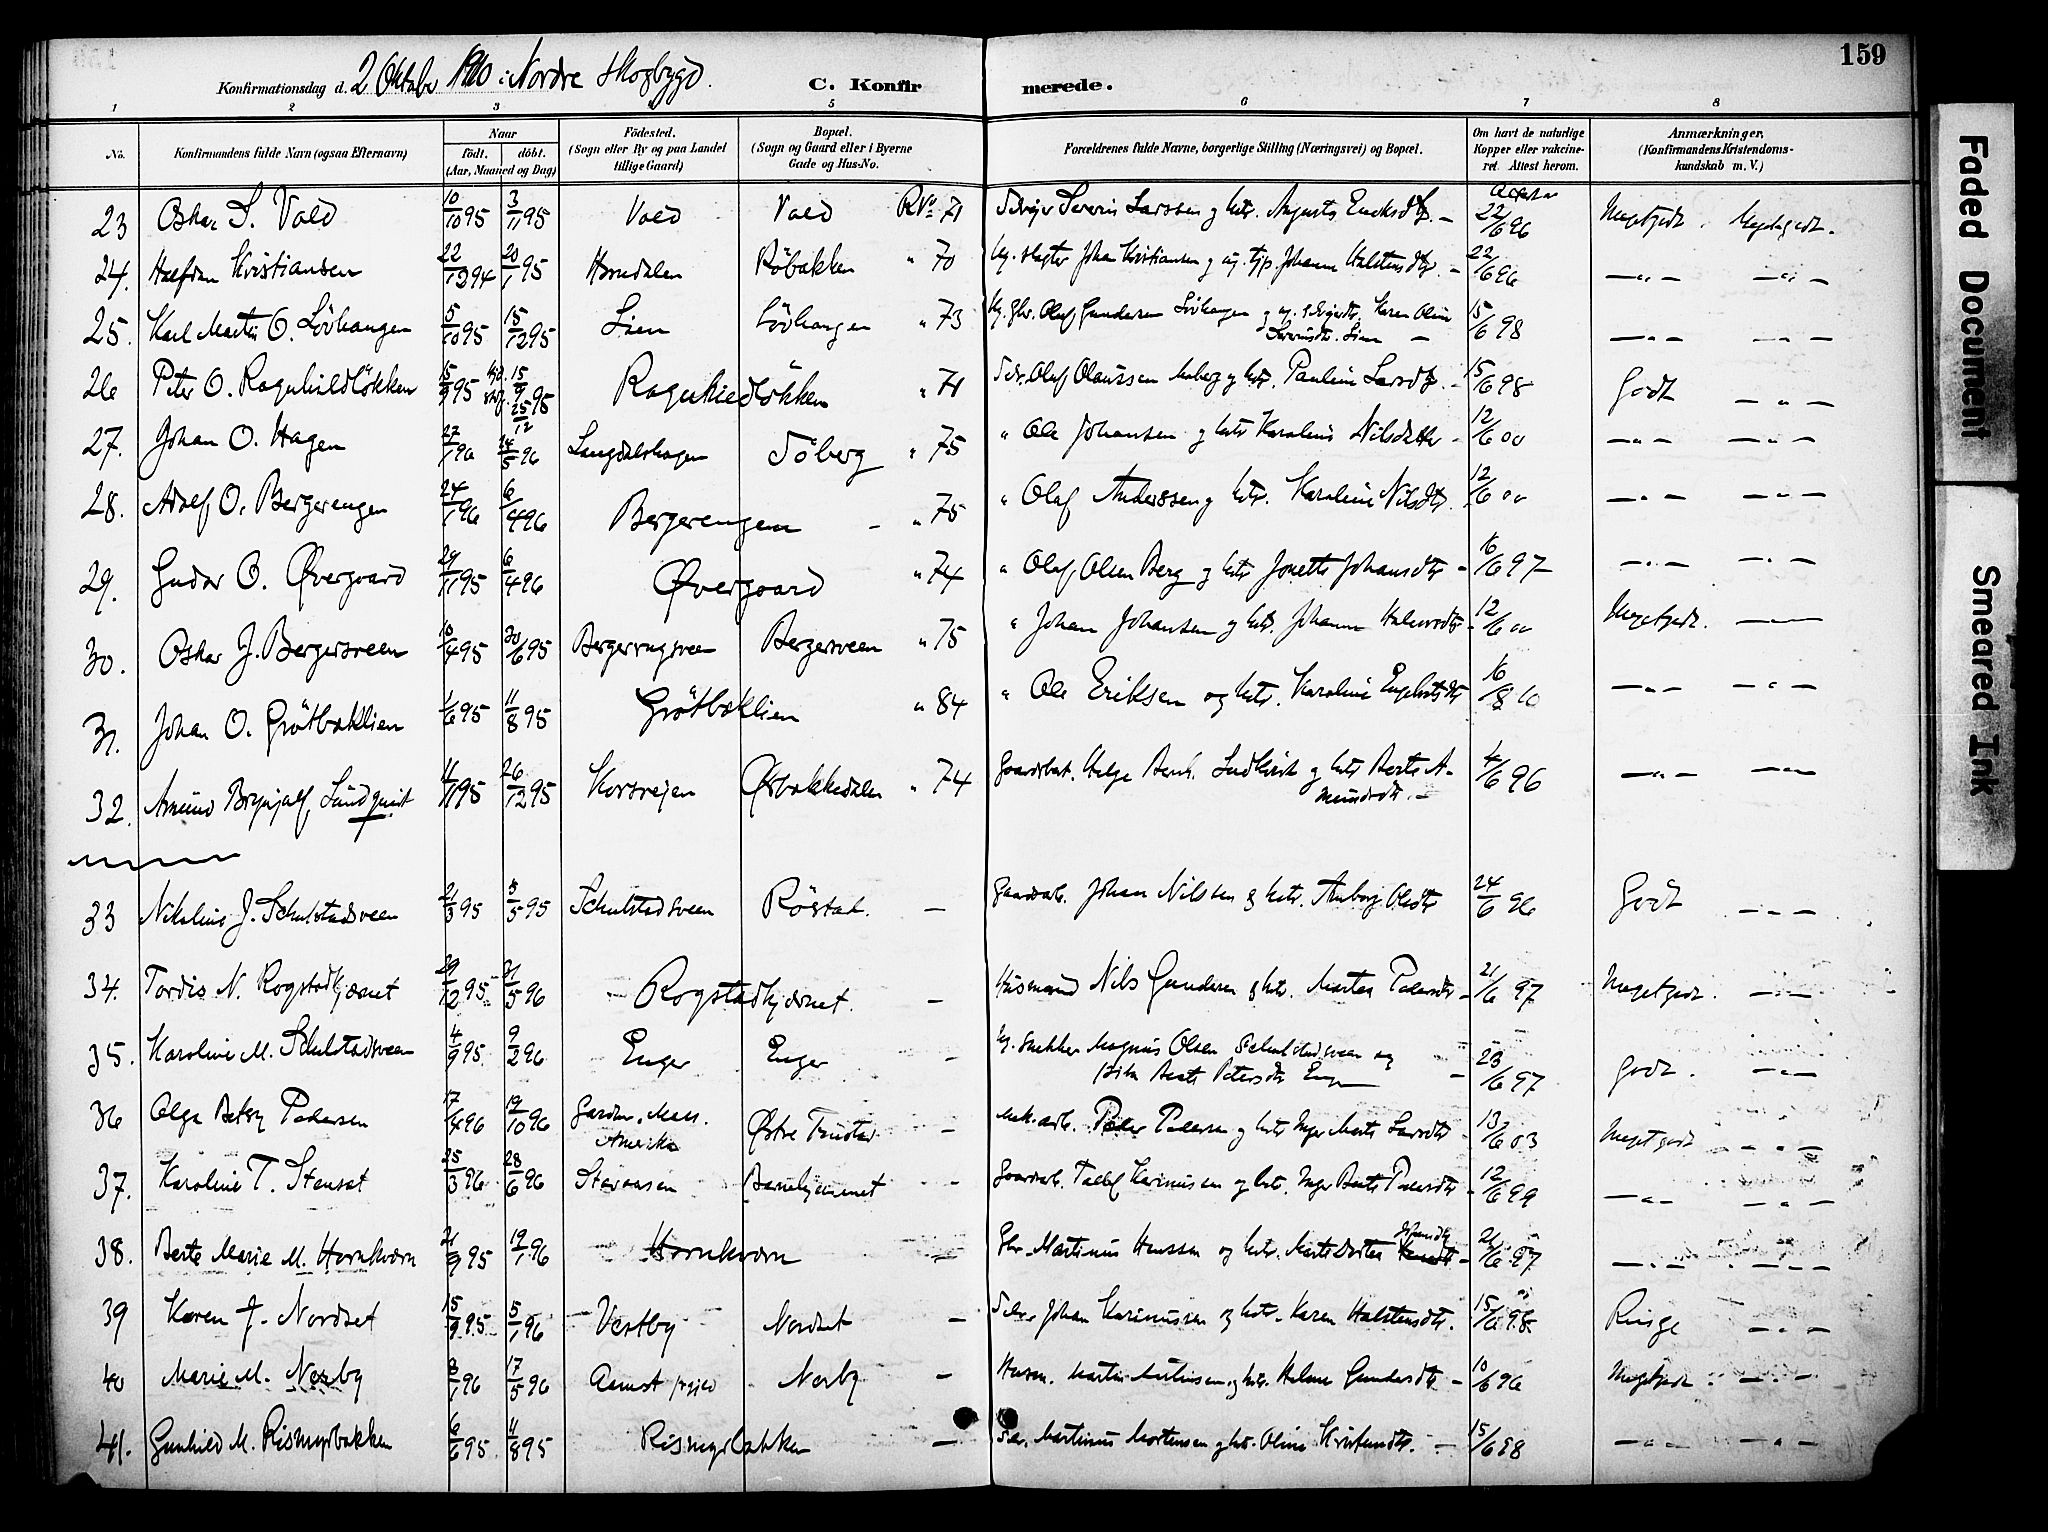 159
Konfirmationsdag d. 2 Oktober 1910 i Nordre Skogbygd. C. Konfirmerede.
1 2 3 4 5 6 7 8
No. Konfirmandens fulde Navn (ogsaa Efternavn) Naar födt. döbt. (Aar, Maaned og Dag) Födested. (Sogn eller By og paa Landet tillige Gaard) Bopæl. (Sogn og Gaard eller i Byerne Gade og Hus-No. Forældrenes fulde Navne, borgerlige Stilling (Næringsvei) og Bopæl. Om havt de naturlige Kopper eller vakcineret. Attest herom. Anmærkninger. (Konfirmandens Kristendomskundskab m. V.)
23 Oskar S. Vold 10/10 95 3/11 95 Vold Vold RNo 71 Severin Larssen og hstr. Augusta 22/6 96 Megetgodt. Megetgodt.
24. Halfdan Kristiansen 22/12 94 20/1 95 Horndalen Röbakken " 70 Johan Kristiansen og Johanne Halstensdtr. 22/6 96 —"— —"—
25. Karl Martin O. Lövhaugen 5/10 95 15/12 95 Lien Lövhaugen " 73 Olaf Gundersen Lövhaugen og Karen Oline Lien 15/6 98 —"— —"—
26 Peter O. Ragnhildlökken 15/9 95 15/9 95 25/12 Ragnhildlökken " 71 Olaf Olaussen og hstr. Pauline Larsdtr. 15/6 98 Godt —"—
27. Johan O. Hagen 27/1 96 14/5 96 Langdalshagen Söberg " 75 " Ole Johansen og hstr Karoline Nilsdatter 12/6 00 —"— —"—
28. Adolf O. Bergerengen 24/1 96 6/4 96 Bergerengen - " 75 " Olaf Anderssen og hstr. Karoline Nilsdtr. 12/6 00 —"— —"—
29. Gudar O. Øvergaard 29/11 95 6/4 96 Øvergaard " 74 " Olaf Olsen Berg og hstr Jonette Johansdtr 16/6 97 —"— —"—
30. Oskar J. Bergersveen 10/4 95 30/6 95 Bergerengsveen Bergersveen " 75 " Johan Johansen og hstr. Johanne Halvorsdtr 12/6 00 Megetgodt. —
31. Johan O. Grötbæklien 1/6 95 11/8 95 Grötbæklien " 84 " Ole Eriksen og hstr. Karoline Engebretsdtr 16/8 10 —"— —"—
32. Amund Brynjulf Lundquist 11/11 95 26/12 95 Korsvejen Øksbakkedalen " 74 Gaardbrt. Helge Bernh. Lundkvist og hstr Berte Amundsdtr. 4/6 96 —"— —"—
33 Nikolius J. Schulstadsveen 21/3 95 5/5 95 Schulstadsveen Röstat. — Gaardarb. Johan Nilssen og hstr. Anborg Olsdtr 24/6 96 Godt —"—
34. Tordis N. Rogstadkjærnet 29/12 95 31/5 96 Rogstadkjærnet. — Husmand Nils Gundersen og hstr. Martea Pedersdtr 21/6 97 Megetgodt. —"—
35. Karoline M. Schulstadsveen 4/9 95 9/2 96 Enger Enger — Ug. snekker Magnus Olsen Schulstadsveen og pike Berte Petersdtr Enger 23/6 97 Godt. —"—
36 Olga Betsy Pedersen 17/4 96 19/10 96 Gardner, Mass. Amerika Østre — Peder Pedersen og hstr Inger Marte Larsdtr 13/6 03 Megetgodt —"—
37. Karoline T. Stenset 25/3 96 28/6 96 Storaasen Barnehjemmet — Gaardarb. Karinussen og hstr. Inger Berte Pedersdtr 12/6 99 —"— —"—
38. Berte Marie M. Hornkværn 21/9 95 19/1 96 Hornkværn — Gbr. Martinius Hanssen og hstr. Marte Dortea 21/6 97 —"— —"—
39 Karen J. Nordset 15/9 95 5/1 96 Vestby Nordset — Johan Karinussen og hstr. Karen Halstensdtr. 15/6 98 Ringe —"—
40 Marie M. Nerby 8/1 96 17/5 96 Aamot prgjld Nerby — Husm. Martin og hstr. Helene Gundersdtr 10/6 96 Megetgodt. —"—
41. Gunhild M. Rismyrbakken 6/6 95 11/8 95 Rismyrbakken — Martinus Mortensen og hstr. Oline 15/6 98 —"— —"—
Faded Document
Smeared Ink